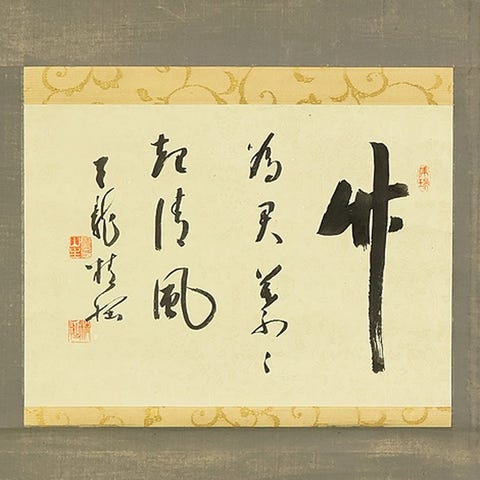 竹
為君葉〻
起清風
天龍精拙